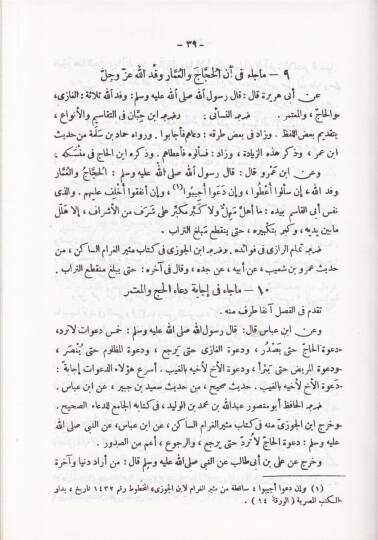 – ٣٩ –
٩ – ماجاء فى أن الحُجَّاجَ والعُمَّار وفْد الله عزّ وجلّ
عن أبى هريرة قال: قال رسول الله صلى الله عليه وسلم: وفد الله ثلاثة: الغازى،
والحاج، والمعتمر. خرجه النسأى: وخرجه ابن حِبَّان فى التقاسيم والأنواع،
بتقديم بعض اللفظ. وزاد فى بعض طرقه: دعاهم فأجابوا. ورواه حماد بن سلمة من حديث
ابن عمر، وذكر هذه الزيادة، وزاد: فسألوه فأعطاهم. وذكره ابن الحاج فى منسكه.
وعن ابن عمرو قال: قال رسول الله صلى الله عليه وسلم: الحُجَّاجُ والعُمَّار
وفد الله، إن سألوا أُعْطُوا، وإن دَعَوا أُجِيبُوا(١)، وإن أنفقوا أُخْلِف عليهم. والذى
نفس أبى القاسم بيده: ما أهلَّ مُهِلٌّ ولا كَبَّر مُكبِّر على شَرَف من الأشراف، إلا هَلَّل
مابين يديه، وكبر بتكبيره، حتى ينقطع مَبلغ التراب.
خرجه تمام الرازى فى فوائده. وخرجه ابن الجوزى فى كتاب مثير الغرام الساكن، من
حديث عمرو بن شعيب، عن أبيه، عن جده، وقال فى آخره: حتى يبلغ منقطع التراب.
١٠ – ماجاء فى إجابة دعاء الحج والمعتمر
تقدم فى الفصل آنفا طرف منه.
وعن ابن عباس قال: قال رسول الله صلى الله عليه وسلم: خمس دعوات لاترد،
دعوة الحاجّ حتى يَصْدُر، ودعوة الغازى حتى يَرجع، ودعوة المظلوم حتى يُنْصَر،
ودعوة المريض حتى يَبْرَأ، ودعوة الأخ لأخيه بالغيب. أسرع هؤلاء الدعوات إجابة:
دعوة الأخ لأخيه بالغيب. حديث صحيح، من حديث سعيد بن جبير، عن ابن عباس.
خرجه الحافظ أبو منصور عبدالله بن محمد بن الوليد، فى كتابه الجامع للدعاء الصحيح.
وخرج ابن الجوزىّ منه فى كتاب مثير الغرام الساكن، عن ابن عباس، عن النبى صلى الله
عليه وسلم: دعوة الحاجّ لاتُردّ حتى يرجع، والرجوع، أعم من الصدور.
وخرج عن على بن أبى طالب عن النبى صلى الله عليه وسلم قال: من أراد دنيا وآخرة
(١) وإن دعوا أجيبوا، ساقطة من مثير الغرام لابن الجوزى، المخطوط رقم ١٤٣٢ تاريخ، بدار
الكتب المصرية (الورقة ١٤).